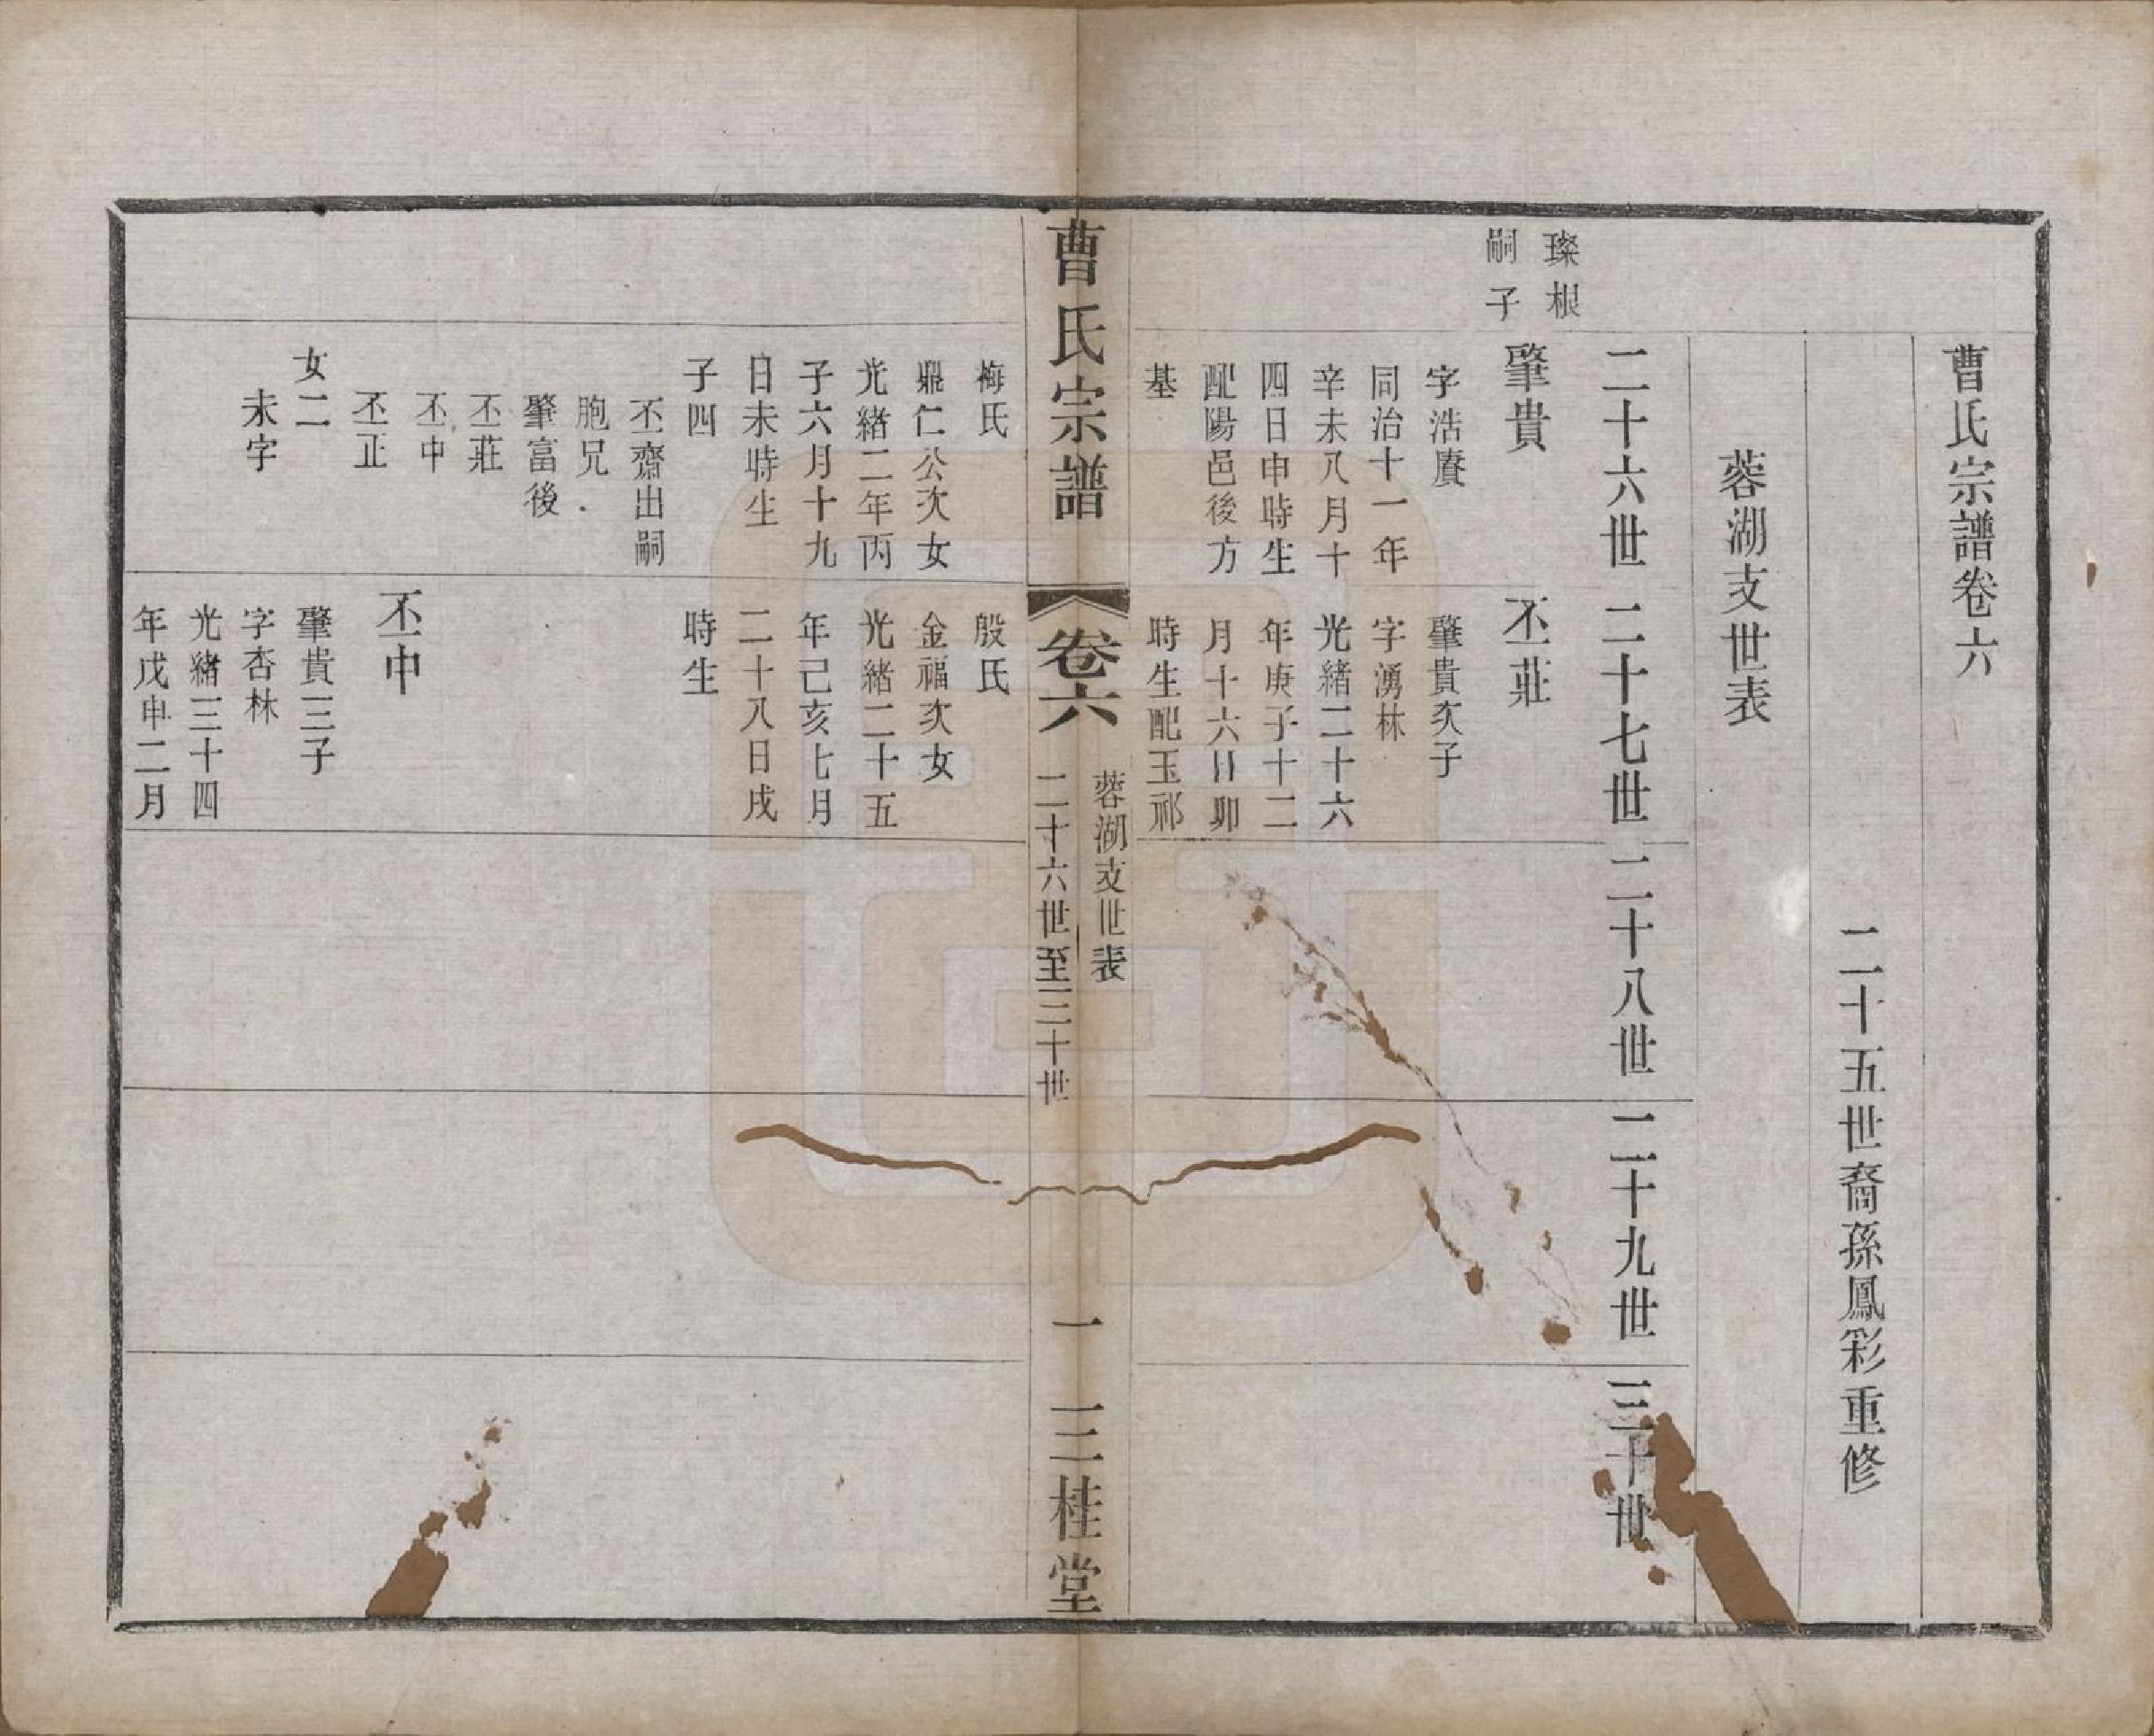 曹氏宗譜卷六
二十五世裔孫鳳彩重修
蓉湖支世表
二十六世
二十七世
二十八世
二十九世
三十世
璨根
嗣子
肇貴
字浩賡
同治十一年
辛未八月十
四日申時生
配陽邑後方
基
丕莊
肇貴次子
字湧林
光緒二十六
年庚子十二
月十六日卯
時生配玉祁
曹氏宗譜
卷六
蓉湖支世表
二十六世至三十世
一
三桂堂
梅氏
鼎仁公次女
光緒二年丙
子六月十九
日未時生
子四
丕齋出嗣
胞兄
肇富後
丕莊
丕中
丕正
女二
未字
殷氏
金福次女
光緒二十五
年己亥七月
二十八日戌
時生
丕中
肇貴三子
字杏林
光緒三十四
年戊申二月